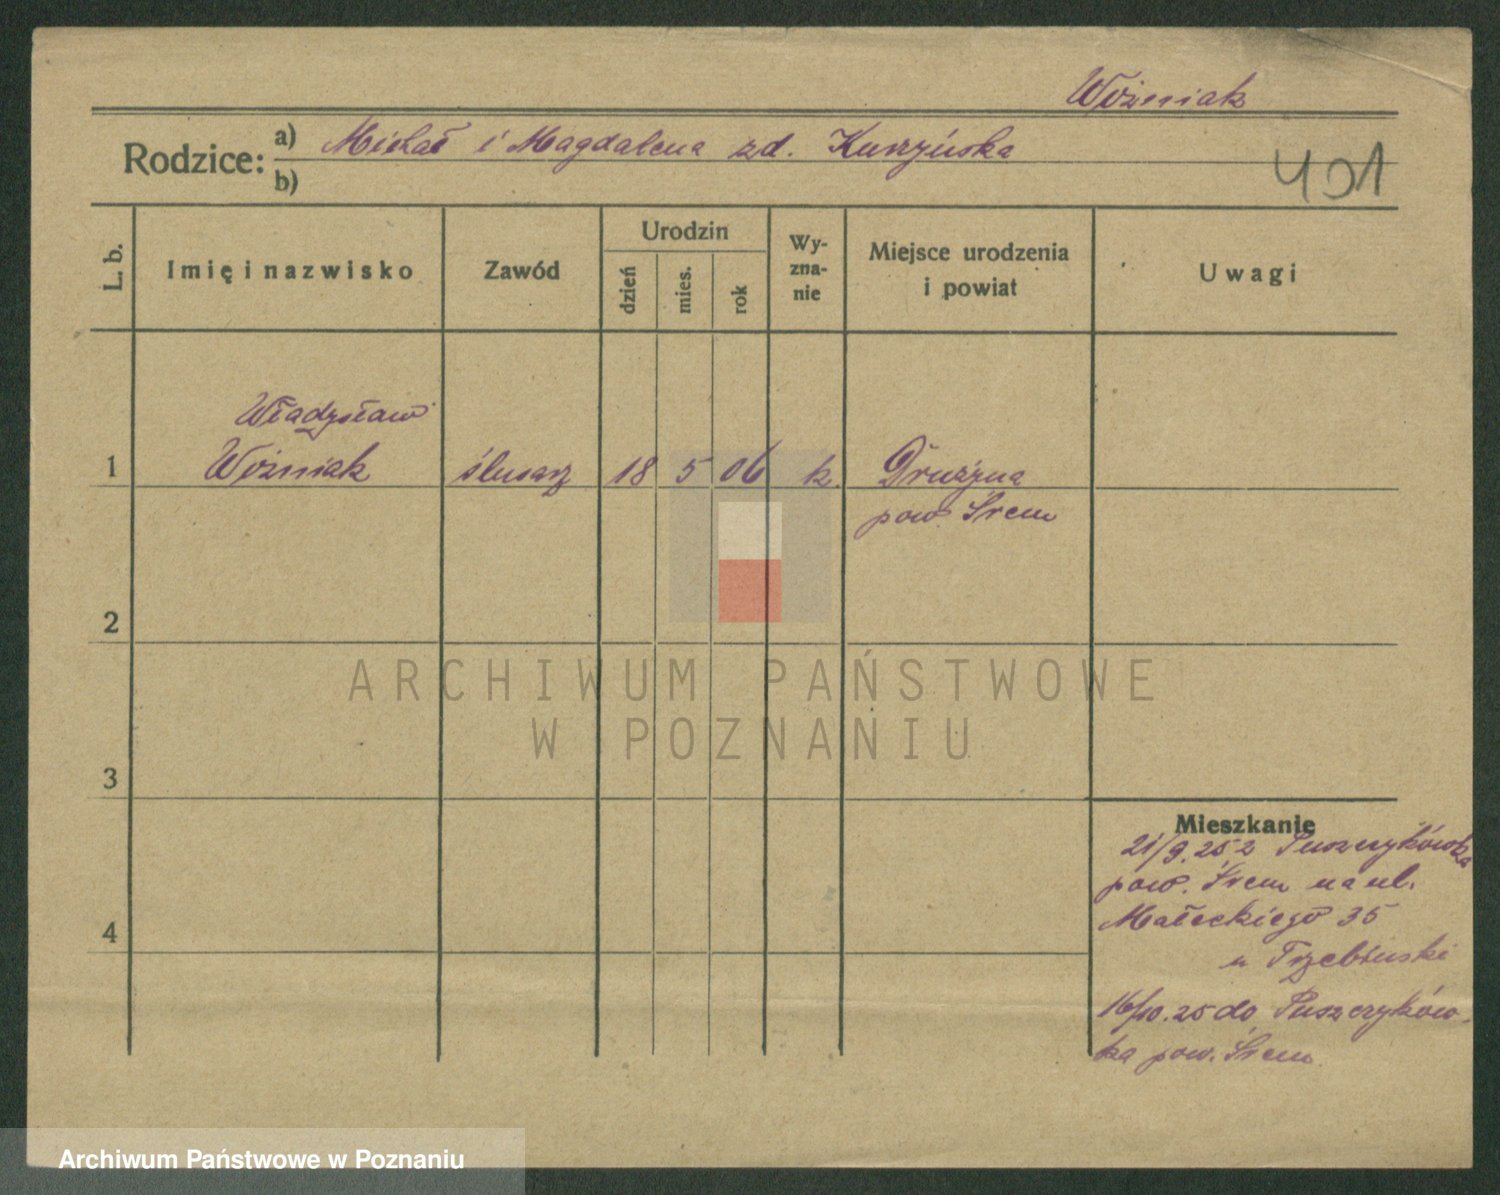 Woźniak
Rodzice: a) Michał i Magdalena zd. Kuszyńska
b)
401
L. b.
Imię i nazwisko
Zawód
Urodzin
dzień
mies.
rok
Wy-
zna-
nie
Miejsce urodzenia
i powiat
Uwagi
Władysław
1 Woźniak ślusarz 18 5 06 k. Drużyna
pow. Śrem
2
ARCHIWUM PAŃSTWOWE
W POZNANIU
3
Mieszkanie
21/9.25 z Puszczykówka
pow. Śrem na ul.
Małeckiego 35
4
u
16/10.25 do Puszczyków-
ka pow. Śrem
Archiwum Państwowe w Poznaniu